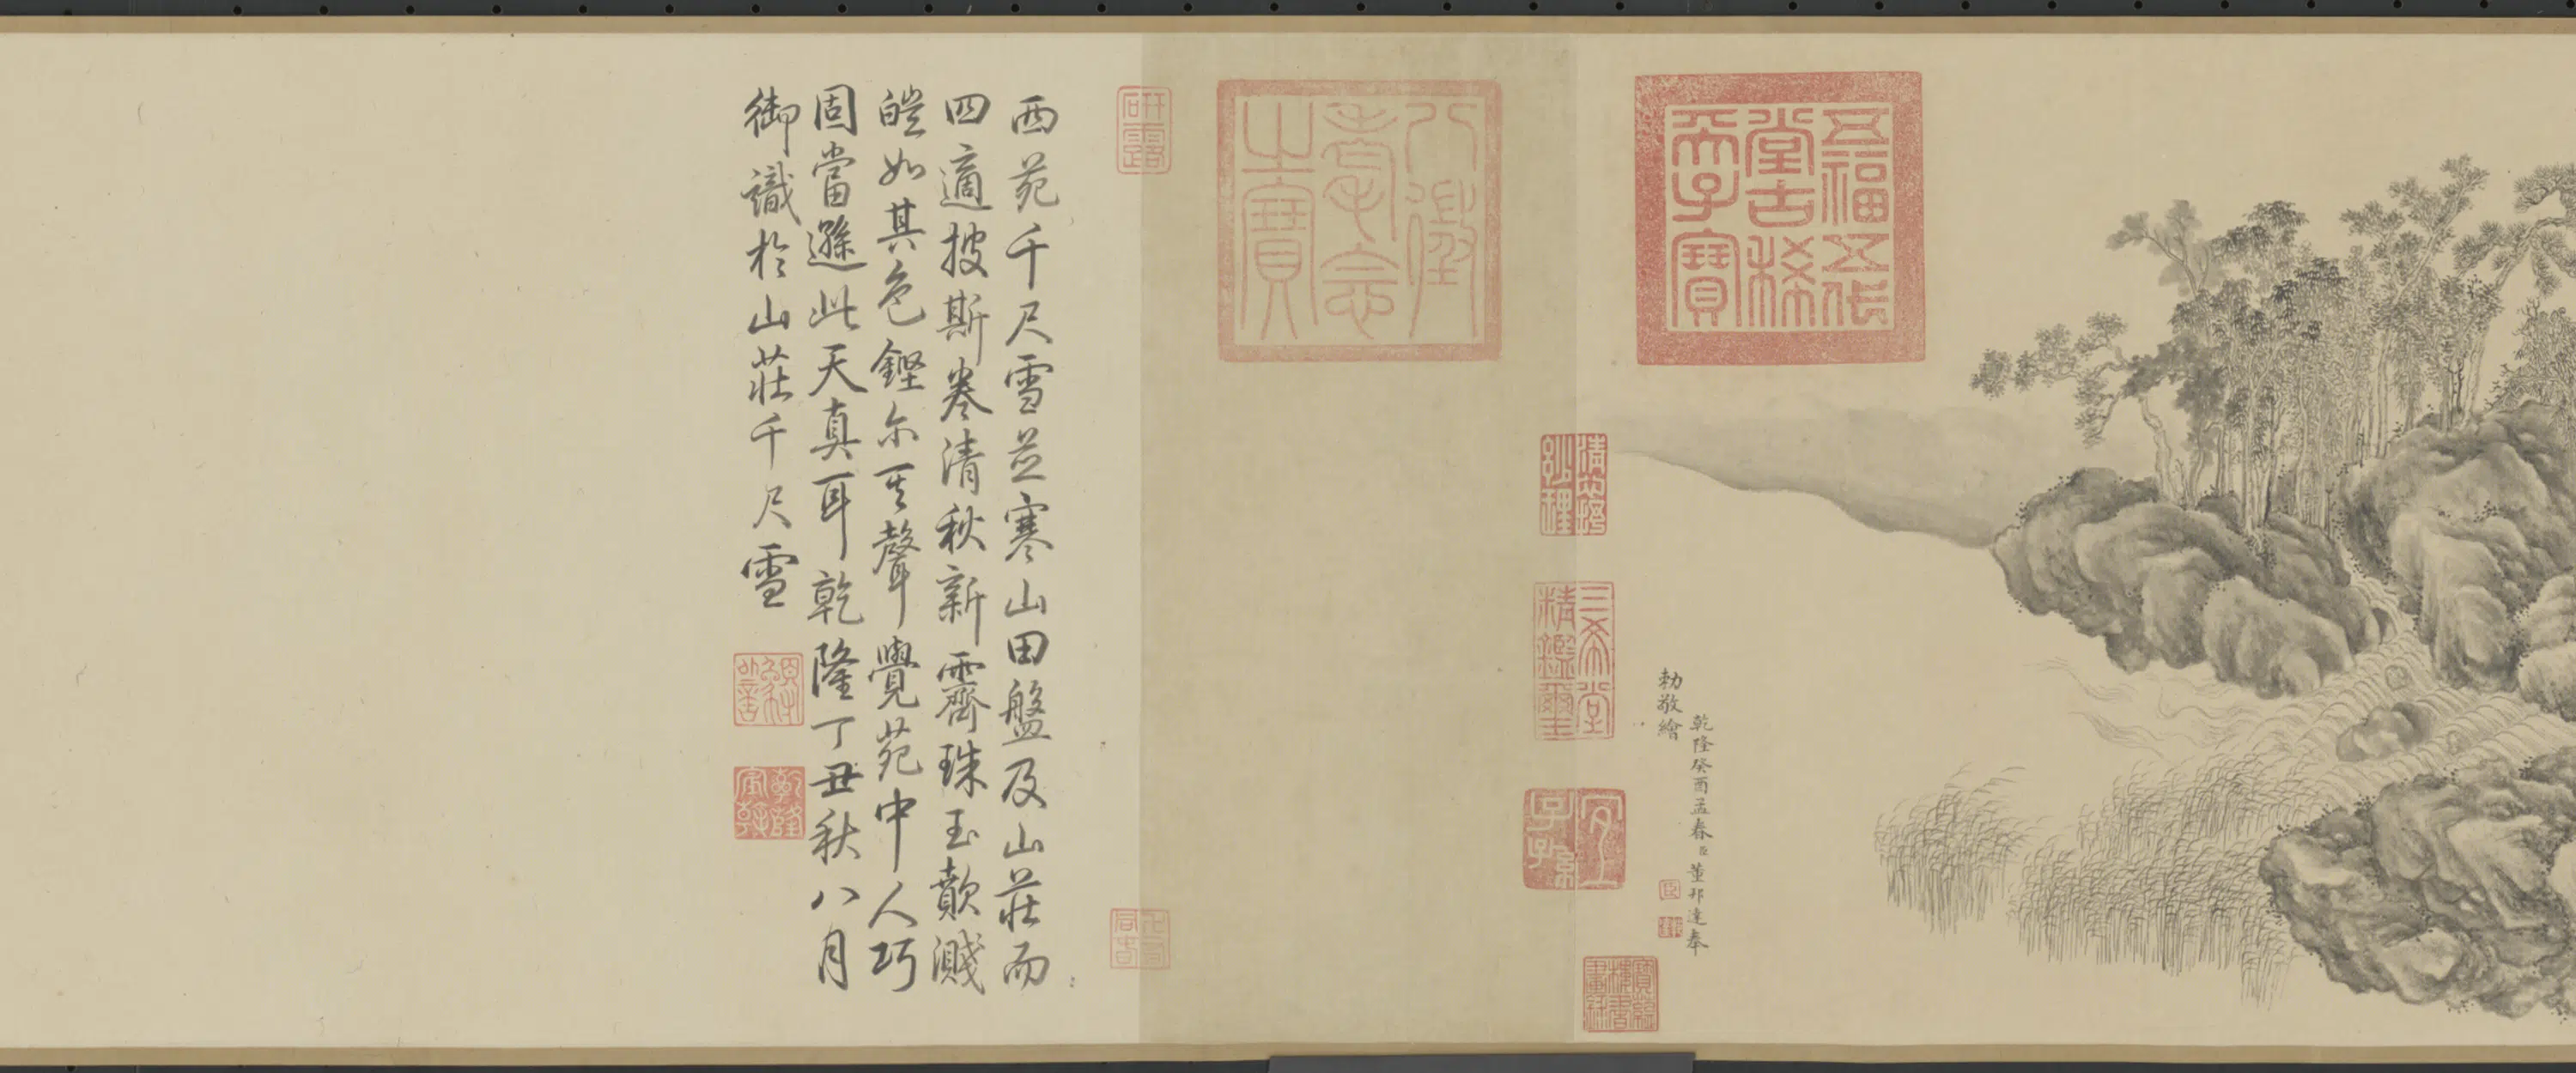 五福五代
堂古稀
天子寶
乾隆癸酉孟春臣董邦達奉
勅敬繪
三希堂
精鑑璽
宜
子孫
八徵
耄念
之寶
研露
西苑千尺雪並寒山田盤及山莊而
四適披斯卷清秋新霽珠玉歕濺
皚如其色鏗尓其聲覺苑中人巧
固當遜此天真耳乾隆丁丑秋八月
御識於山莊千尺雪
乾隆
宸翰